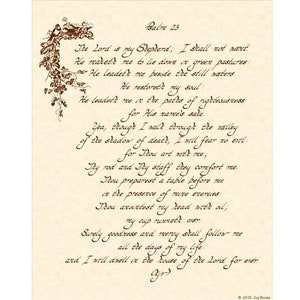 Psalm 23
The Lord is my Shepherd; I shall not want
He maketh me to lie down in green pastures
He leadeth me beside the still waters
He restoreth my soul
He leadeth me in the paths of righteousness
for His name's sake
Yea, though I walk through the valley
of the shadow of death, I will fear no evil
for Thou art with me;
Thy rod and Thy staff they comfort me
Thou preparest a table before me
in the presence of mine enemies
Thou anointest my head with oil;
my cup runneth over
Surely goodness and mercy shall follow me
all the days of my life
and I will dwell in the house of the Lord for ever
© 2012 Joy